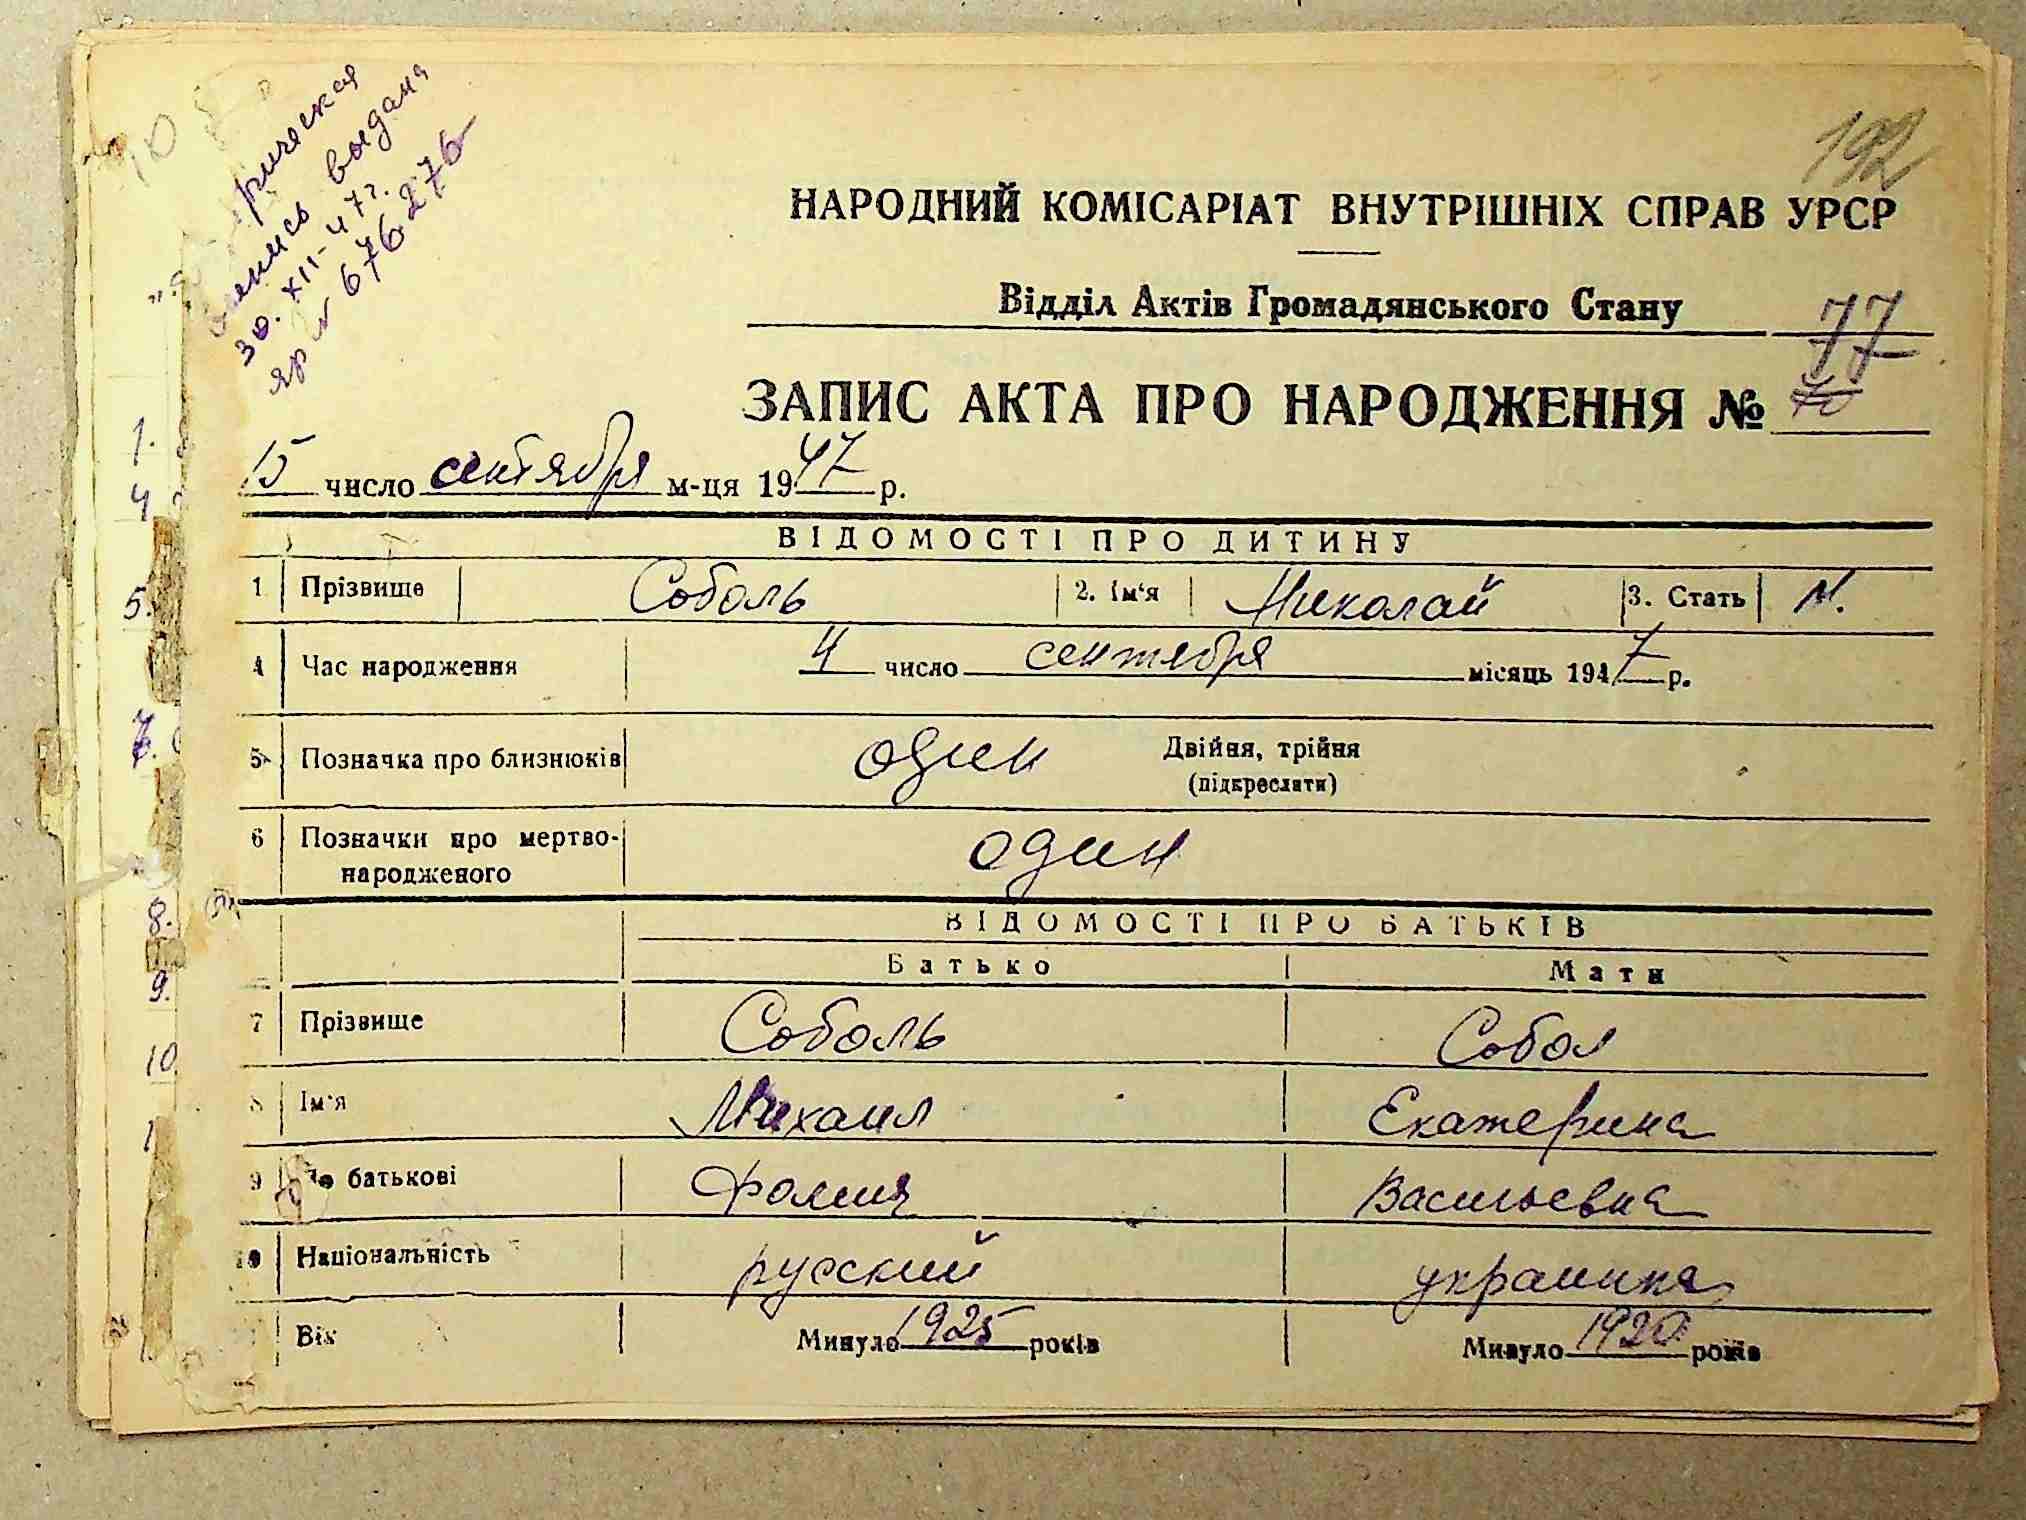 192
выдана
30. XII-47г.
ЯР № 676276
НАРОДНИЙ КОМІСАРІАТ ВНУТРІШНІХ СПРАВ УРСР
Відділ Актів Громадянського Стану
77
ЗАПИС АКТА ПРО НАРОДЖЕННЯ № 70
15 число сентября м-ця 1947 р.
ВІДОМОСТІ ПРО ДИТИНУ
1 Прізвище Соболь 2. Ім'я Николай 3. Стать М.
4 Час народження 4 число сентября місяць 1947 р.
5 Позначка про близнюків один Двійня, трійня
(підкреслити)
6 Позначки про мертво-
народженого один
ВІДОМОСТІ ПРО БАТЬКІВ
Батько Мати
7 Прізвище Соболь Собол
8 Ім'я Михаил Екатерина
9 По батькові Фомич Васильевна
10 Національність русский украинка
Вік Минуло 1925 років Минуло 1920 років
1.
4
5.
7.
8.
9.
10